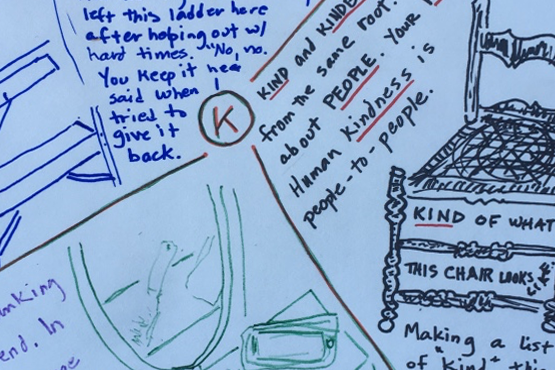 left this ladder here
after helping out w/
hard times. "No, no.
You keep it he
said when I
tried to
give it
back.
K
KIND and KINDE
from the same root.
about PEOPLE. Your
Human Kindness is
people-to-people.
KIND OF WHAT
THIS CHAIR LOOKS
Making a list
of "Kind" thi
nking
end. In